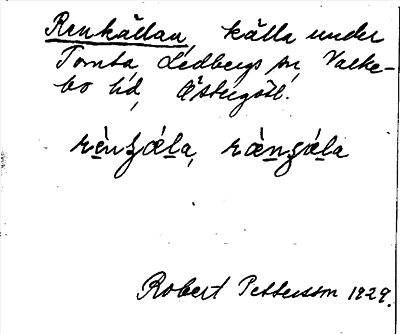 Renkällan, källa under
Tomta, Ledbergs sn, Valke-
bo hd, Östergötl.
Robert Pettersson 1929.